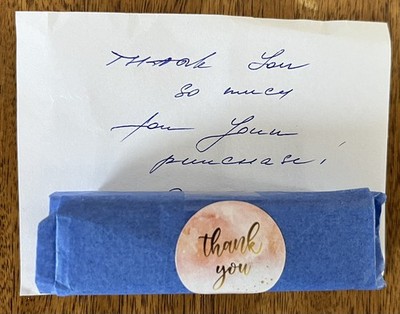 Thank You
so much
for Your
purchase!
thank
you